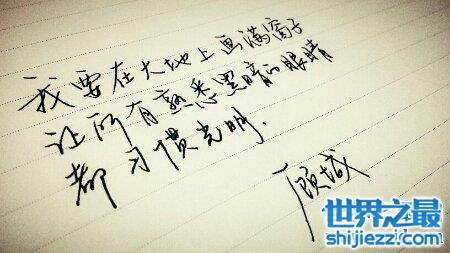 我要在大地上画满窗子
让所有熟悉黑暗的眼睛
都习惯光明.
顾城
世界之最
shijiezz.com